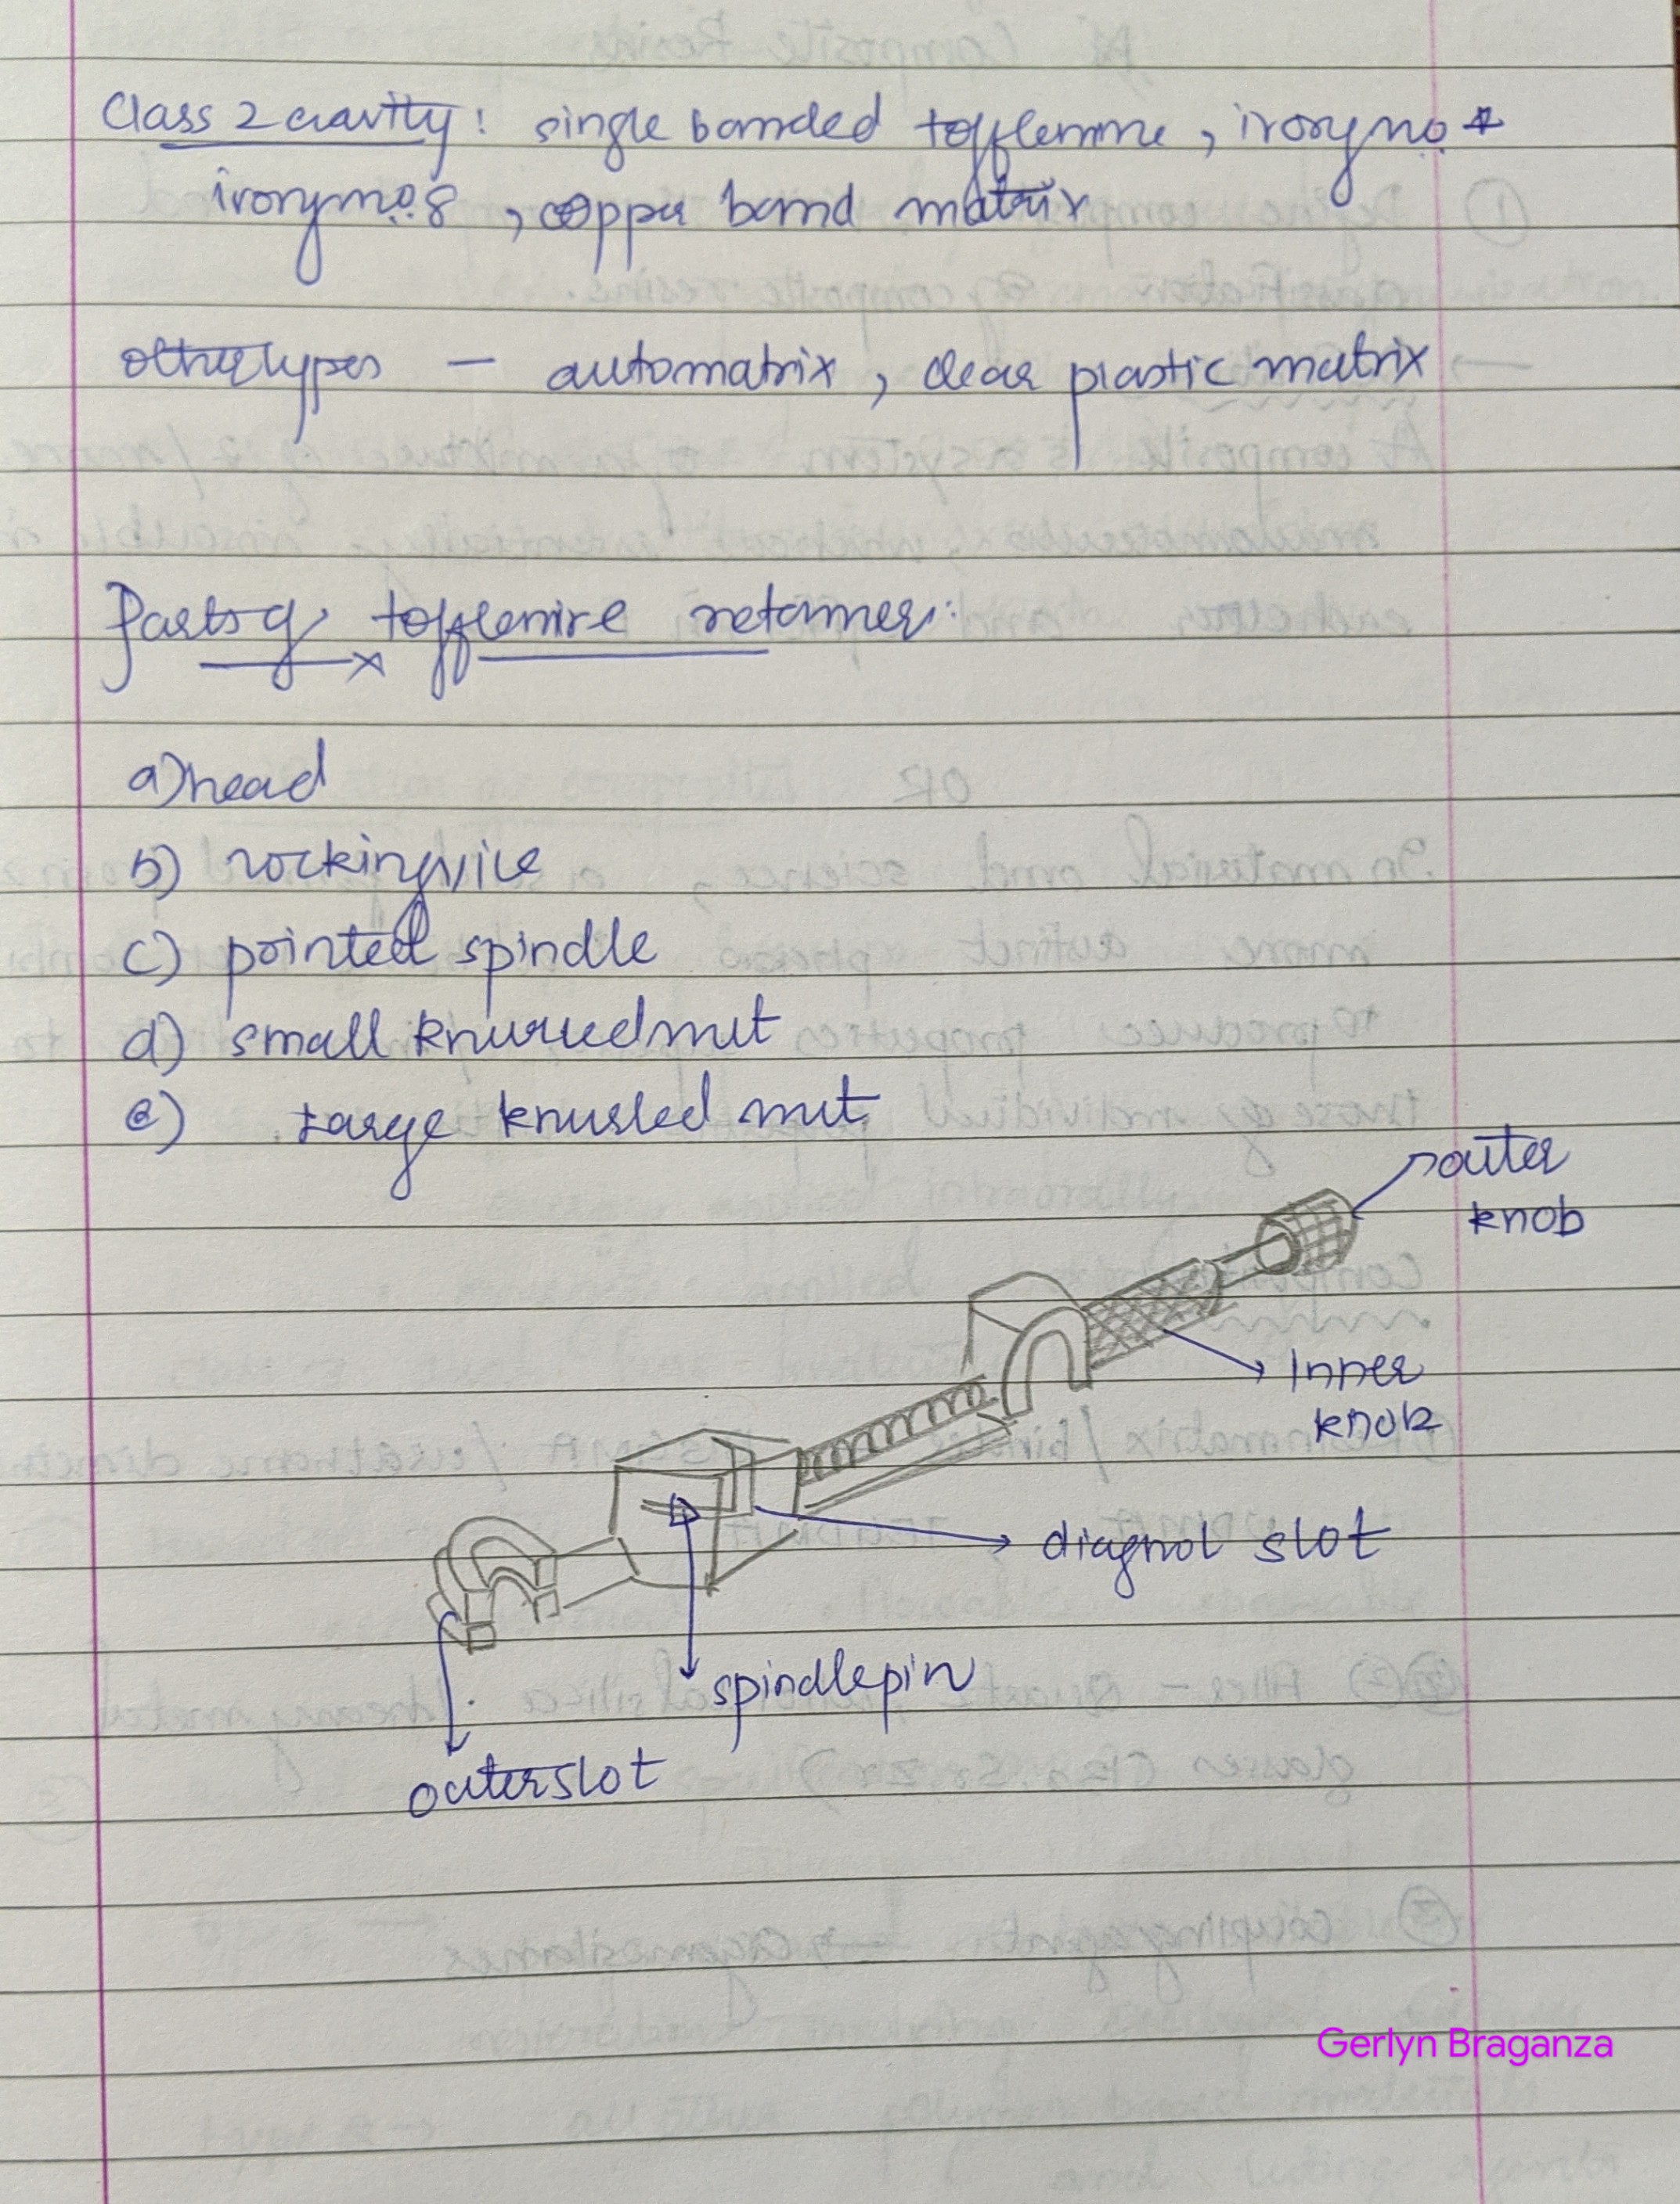 Class 2 cavity: single banded tofflemire, ivory no
ivory no 8, copper band matrix
other types - automatrix, clear plastic matrix
Parts of tofflemire retainer:
a) head
b) rocking vice
c) pointed spindle
d) small knurled nut
e) Large knurled nut
outer
knob
Inner
knob
diagnol slot
spindle pin
outer slot
Gerlyn Braganza